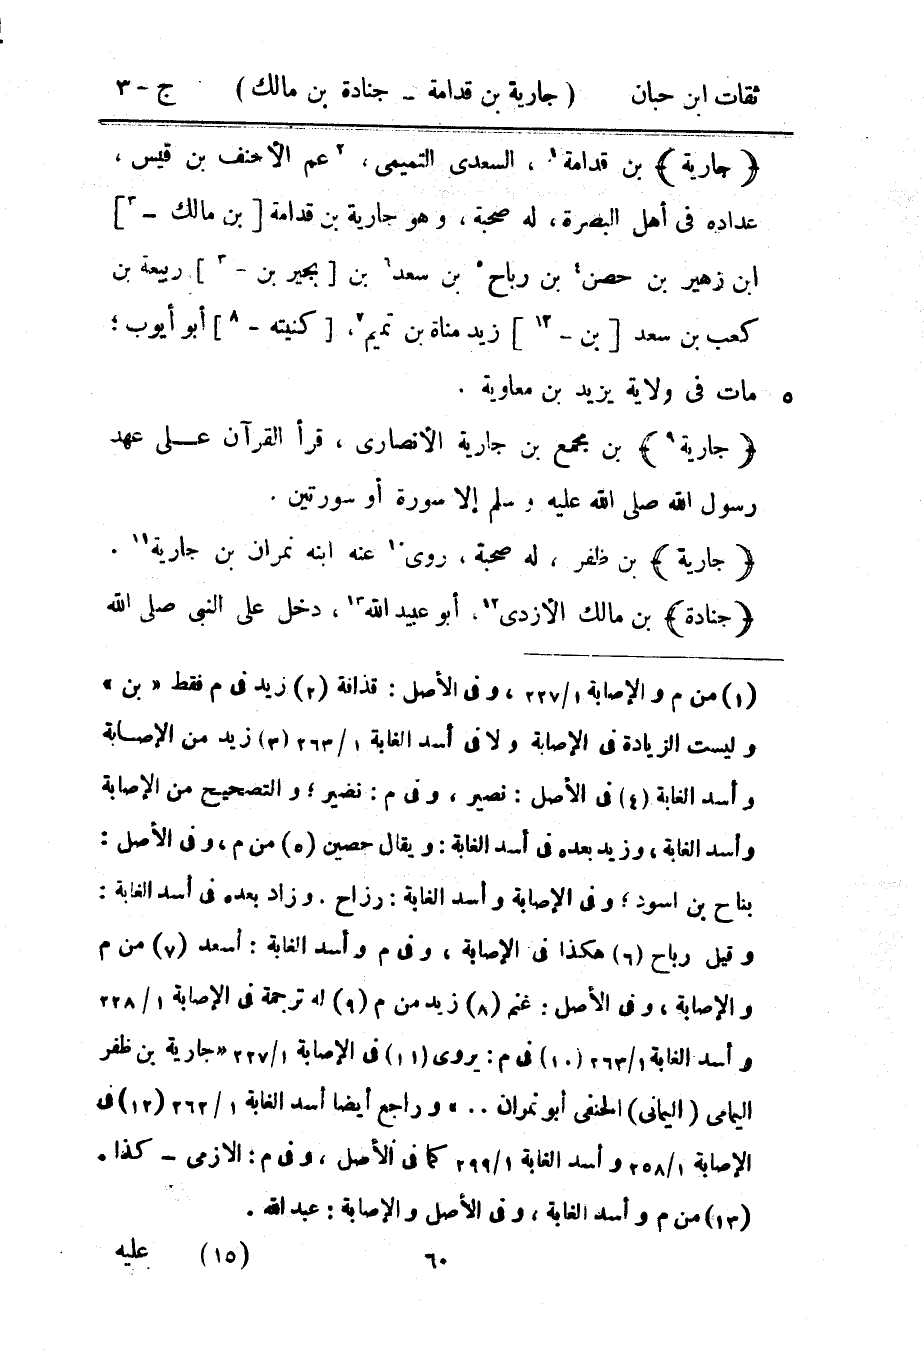 ثقات ابن حبان ( جارية بن قدامة ـ جنادة بن مالك ) ج - ٣
﴿ جارية ﴾ بن قدامة ١ ، السعدى التميمى ، ٢ عم الأحنف بن قيس ،
عداده فى أهل البصرة ، له صحبة ، و هو جارية بن قدامة [ بن مالك ـ ٣ ]
ابن زهير بن حصن ٤ بن رباح ٥ بن سعد ٦ بن [ بجير بن - ٣ ] ربيعة بن
كعب بن سعد [ بن ـ ١٣ ] زيد مناة بن تميم ٧ ، [ كنيته - ٨ ] أبو أيوب ؛
مات فى ولاية يزيد بن معاوية . ٥
﴿ جارية ٩ ﴾ بن مجمع بن جارية الأنصارى ، قرأ القرآن عـلى عهد
رسول الله صلى الله عليه و سلم إلا سورة أو سورتين .
﴿ جارية ﴾ بن ظفر ، له صحبة ، روى ١٠ عنه ابنه نمران بن جارية ١١ .
﴿ جنادة ﴾ بن مالك الأزدى ١٢ ، أبو عبيد الله ١٣ ، دخل على النبى صلى الله
(١) من م و الإصابة ١/٢٢٧ ، و فى الأصل : قذافة (٢) زيد فى م فقط « بن »
و ليست الزيادة فى الإصابة و لا فى أسد الغابة ١ /٢٦٣ (٣) زيد من الإصـابة
و أسد الغابة (٤) فى الأصل : نصير ، و فى م : نضير ؛ و التصحيح من الإصابة
و أسد الغابة ، و زيد بعده فى أسد الغابة : و يقال حصين (٥) من م ، و فى الأصل :
بناح بن اسود ؛ و فى الإصابة و أسد الغابة : رزاح . و زاد بعده فى أسد الغابة :
و قيل رباح (٦) هكذا فى الإصابة ، و فى م و أسد الغابة : أسعد (٧) من م
و الإصابة ، و فى الأصل : غنم (٨) زيد من م (٩) له ترجمة فى الإصابة ١ /٢٢٨
و أسد الغابة ١/٢٦٣ (١٠) فى م : يروى (١١) فى الإصابة ١/٢٢٧ « جارية بن ظفر
اليمامى ( اليمانى ) الحنفى أبو نمران .. » و راجع أيضا أسد الغابة ١ /٢٦٢ (١٢) فى
الإصابة ١/٢٥٨ و أسد الغابة ١/٢٩٩ كما فى الأصل ، و فى م : الازمى ـ كذا .
(١٣) من م و أسد الغابة ، و فى الأصل و الإصابة : عبد الله .
٦٠ (١٥) عليه